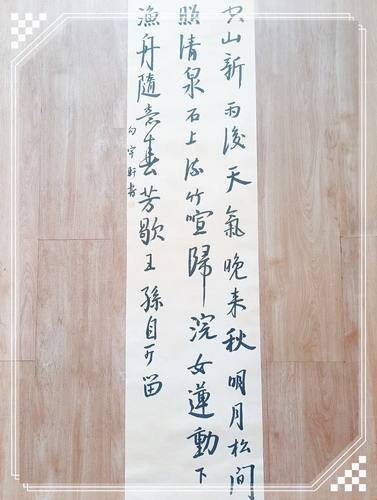 空山新雨後天氣晚来秋明月松间
照清泉石上流竹喧歸浣女蓮動下
漁舟隨意春芳歇王孫自可留